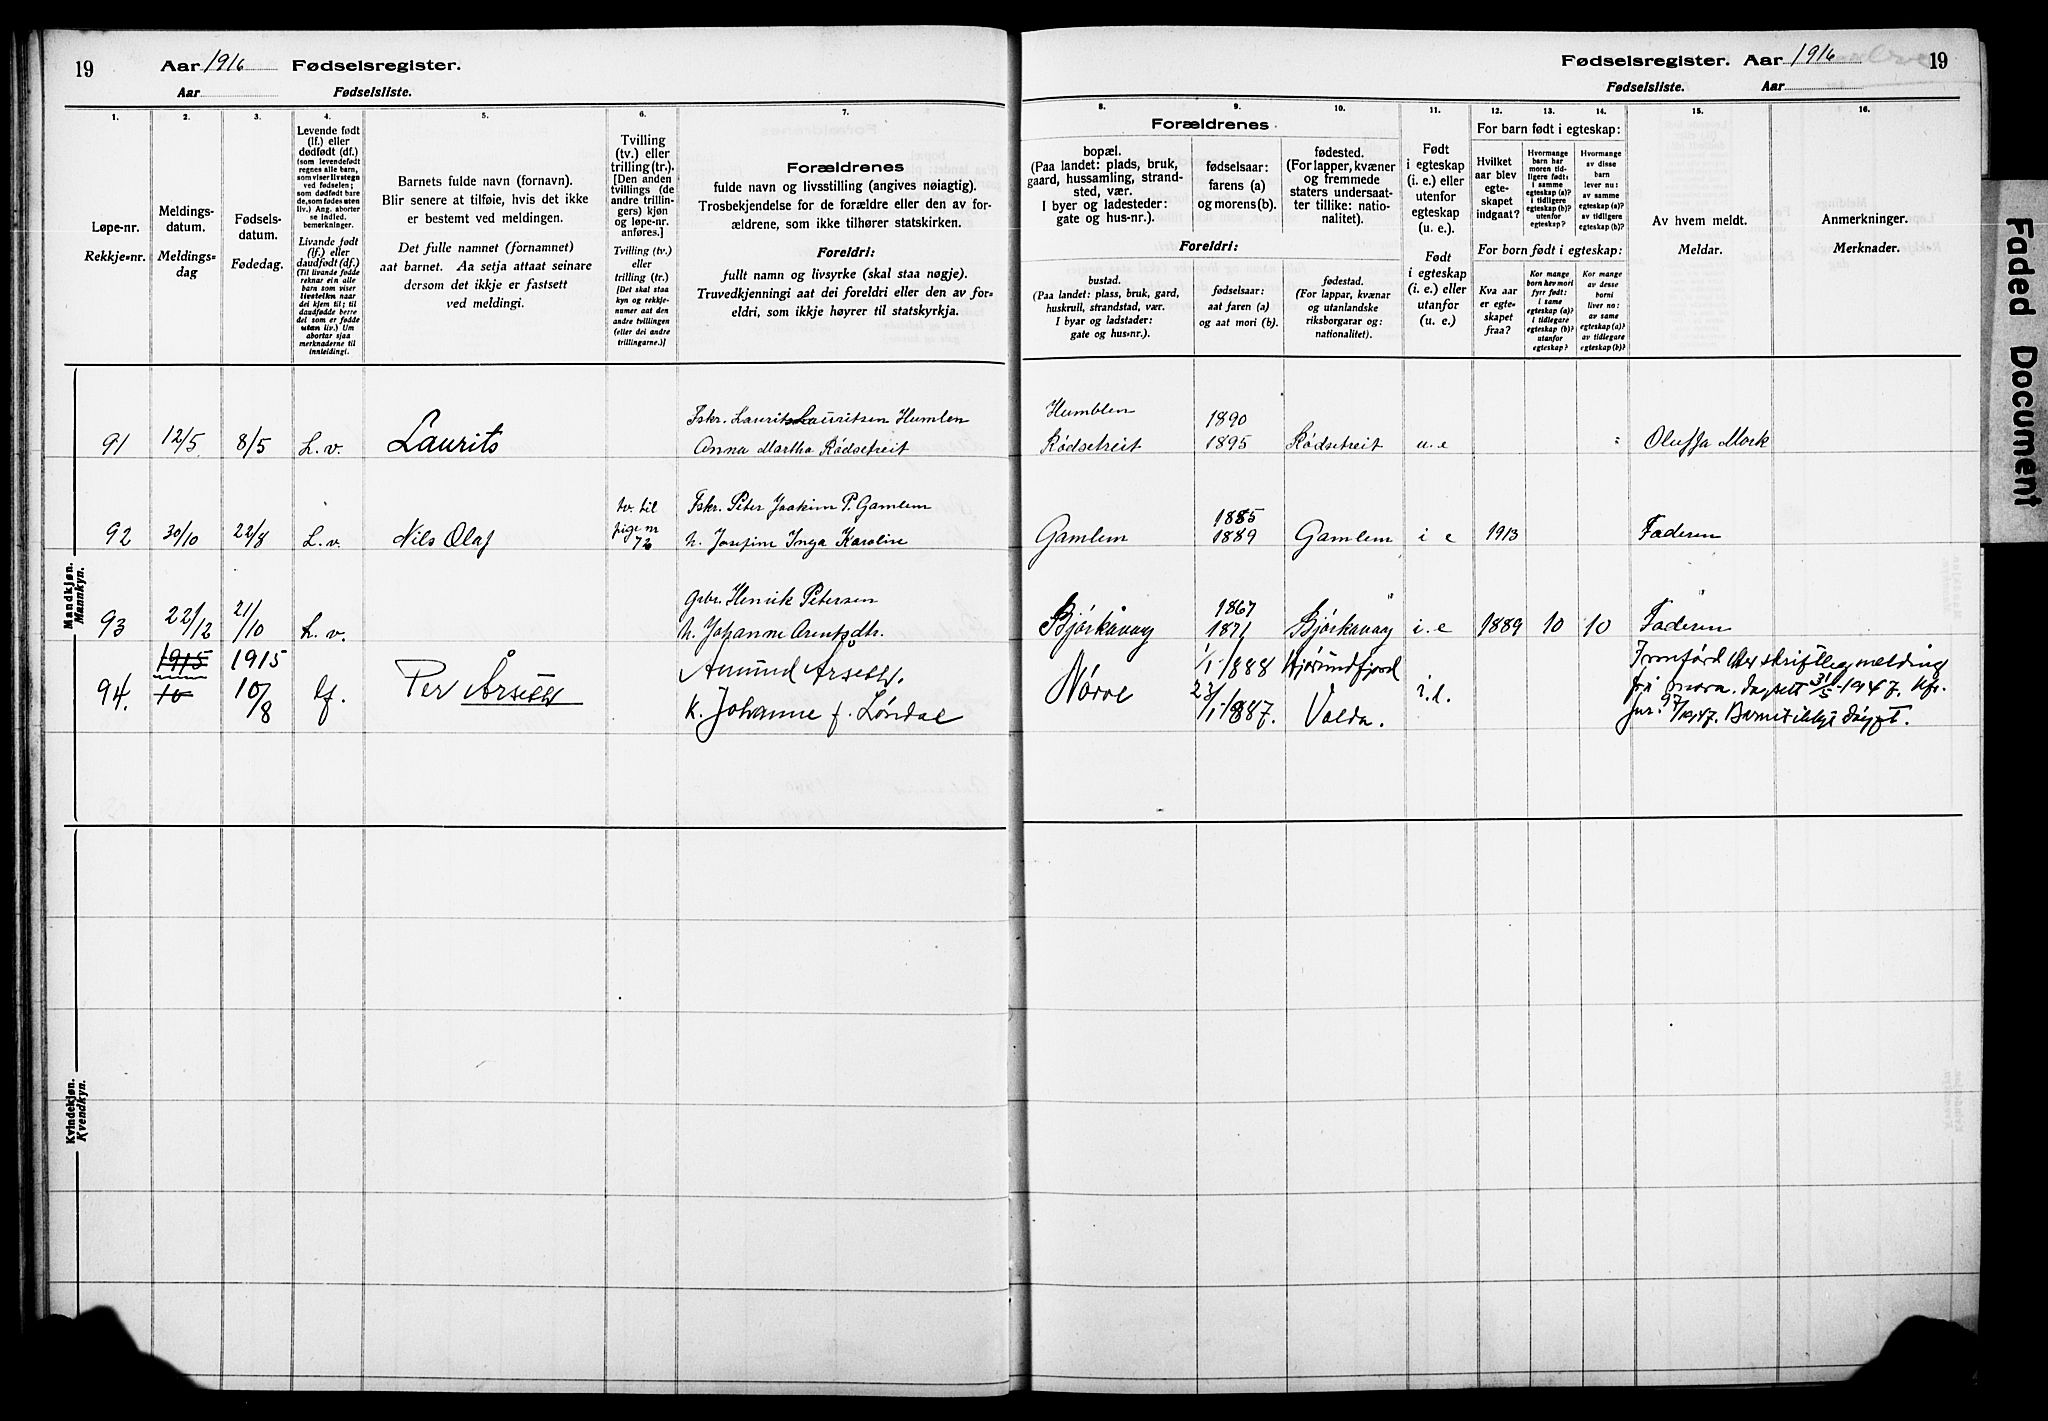 19 Aar 1916 Fødselsregister.
Aar Fødselsliste.
Fødselsregister. Aar 1916 19
Fødselsliste. Aar
1. 2. 3. 4. 5. 6. 7.
Løpe-nr.
Rekkje-nr.
Meldings-
datum.
Meldings-
dag
Fødsels-
datum.
Fødedag.
Levende født
(lf.) eller
dødfødt (df.)
(som levendefødt
regnes alle barn,
som viser livstegn
ved fødselen;
som dødfødt bare
de, som fødes uten
liv.) Ang. aborter
se indled.
bemerkninger.
Livande født
(lf.) eller
daudfødt (df.)
(Til livande fødde
reknar ein alle
barn som viser
livsteikn naar
dei kjem til; til
daudfødde berre
dei som er fødde
utan liv.) Um
abortar sjaa
merknaderne til
innleidingi.
Barnets fulde navn (fornavn).
Blir senere at tilføie, hvis det ikke
er bestemt ved meldingen.
Det fulle namnet (fornamnet)
aat barnet. Aa setja attaat seinare
dersom det ikkje er fastsett
ved meldingi.
Tvilling
(tv.) eller
trilling (tr.).
[Den anden
tvillings (de
andre trillin-
gers) kjøn
og løpe-nr.
anføres.]
Tvilling (tv.)
eller
trilling (tr.)
[Det skal staa
kyn og rekkje-
numer aat den
andre tvillingen
(eller dei andre
trillingarne.)]
Forældrenes
fulde navn og livsstilling (angives nøiagtig).
Trosbekjendelse for de forældre eller den av for-
ældrene, som ikke tilhører statskirken.
Foreldri:
fullt namn og livsyrke (skal staa nøgje).
Truvedkjenningi aat dei foreldri eller den av for-
eldri, som ikkje høyrer til statskyrkja.
8. 9. 10. 11. 12. 13. 14. 15. 16.
Forældrenes
bopæl.
(Paa landet: plads, bruk,
gaard, hussamling, strand-
sted, vær.
I byer og ladesteder:
gate og hus-nr.).
fødselsaar:
farens (a)
og morens (b).
fødested.
(For lapper, kvæner
og fremmede
staters undersaat-
ter tillike: natio-
nalitet).
Foreldri:
bustad.
(Paa landet: plass, bruk, gard,
huskrull, strandstad, vær.
I byar og ladstader:
gate og hus-nr.).
fødselsaar:
aat faren (a)
og aat mori (b).
fødestad.
(For lappar, kvænar
og utanlandske
riksborgarar og:
nationalitet).
Født
i egteskap
(i. e.) eller
utenfor
egteskap
(u. e.).
Født
i egteskap
(i. e.) eller
utanfor
(u. e.).
For barn født i egteskap:
Hvilket
aar blev
egte-
skapet
indgaat?
Hvormange
barn har
moren tid-
ligere født:
i samme
egteskap (a)?
i tidligere
egteskap (b)?
utenfor
egteskap?
Hvormange
av disse
barn
lever nu:
av samme
egteskap (a)?
av tidligere
egteskap (b)?
For born født i egteskap:
Kva aar
er egte-
skapet
fraa?
Kor mange
born hev mori
fyrr født:
i same
egteskap (a)?
i tidlegare
egteskap (b)?
utanfor
egteskap?
Kor mange
av desse
borni
liver no:
av same
egteskap (a)?
av tidlegare
egteskap (b)?
Av hvem meldt.
Meldar.
Anmerkninger.
Merknader.
Mandkjøn.
Mannkyn.
91 12/5 8/5 L. v. Laurits Fskr. Laurits Lauritsen Humlen
Anna Martha Rödsetreit
Humblen 1890
Rödsetreit 1895 Rödsetreit u. e Oluffa Mork
92 30/10 22/8 L. v. Nils Olaf tv. til pige nr 72 Fskr. Peter Joakim P. Gamlem
h. Josefine Inga Karoline
1885
Gamlem 1889 Gamlem i e 1913 Faderen
93 22/12 21/10 L. v. Gbr. Henrik Petersen
h. Johanne Arentsdtr.
1867
Bjørkavaag 1871 Bjørkavaag i. e 1889 10 10 Faderen
94. 1915 10 1915 10/8 lf. Per Årseth Amund Årseth.
K. Johanne f. Løndal
Nørve 1/1 1888 Hjørundfjord
23/1 1887. Volda. i. e.
Innførd etter skriftleg melding
frå mora. dagsett 31/5-1947. Kfr.
Jnr. 97/1947. Barnet ikkje døypt.
Kvindekjøn.
Kvendkyn.
Faded Document